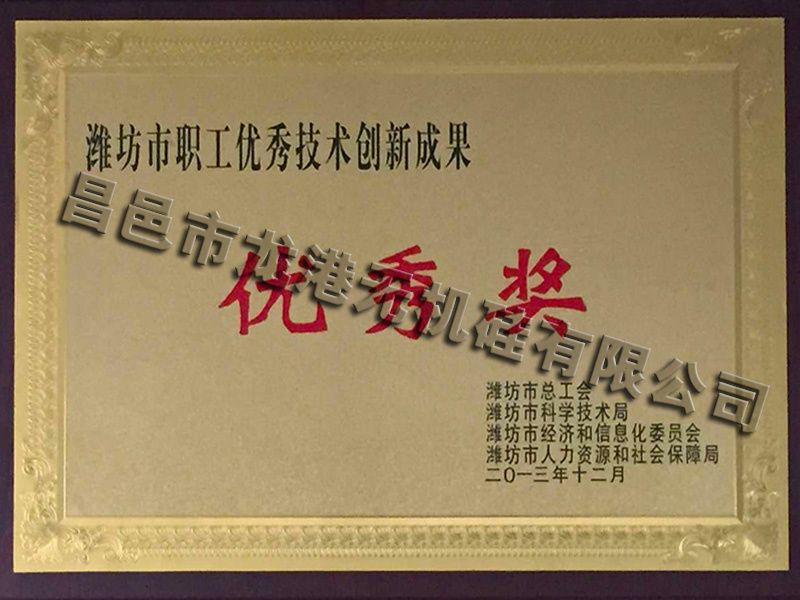 潍坊市职工优秀技术创新成果
昌邑市龙港无机硅有限公司
优秀奖
潍坊市总工会
潍坊市科学技术局
潍坊市经济和信息化委员会
潍坊市人力资源和社会保障局
二〇一三年十二月